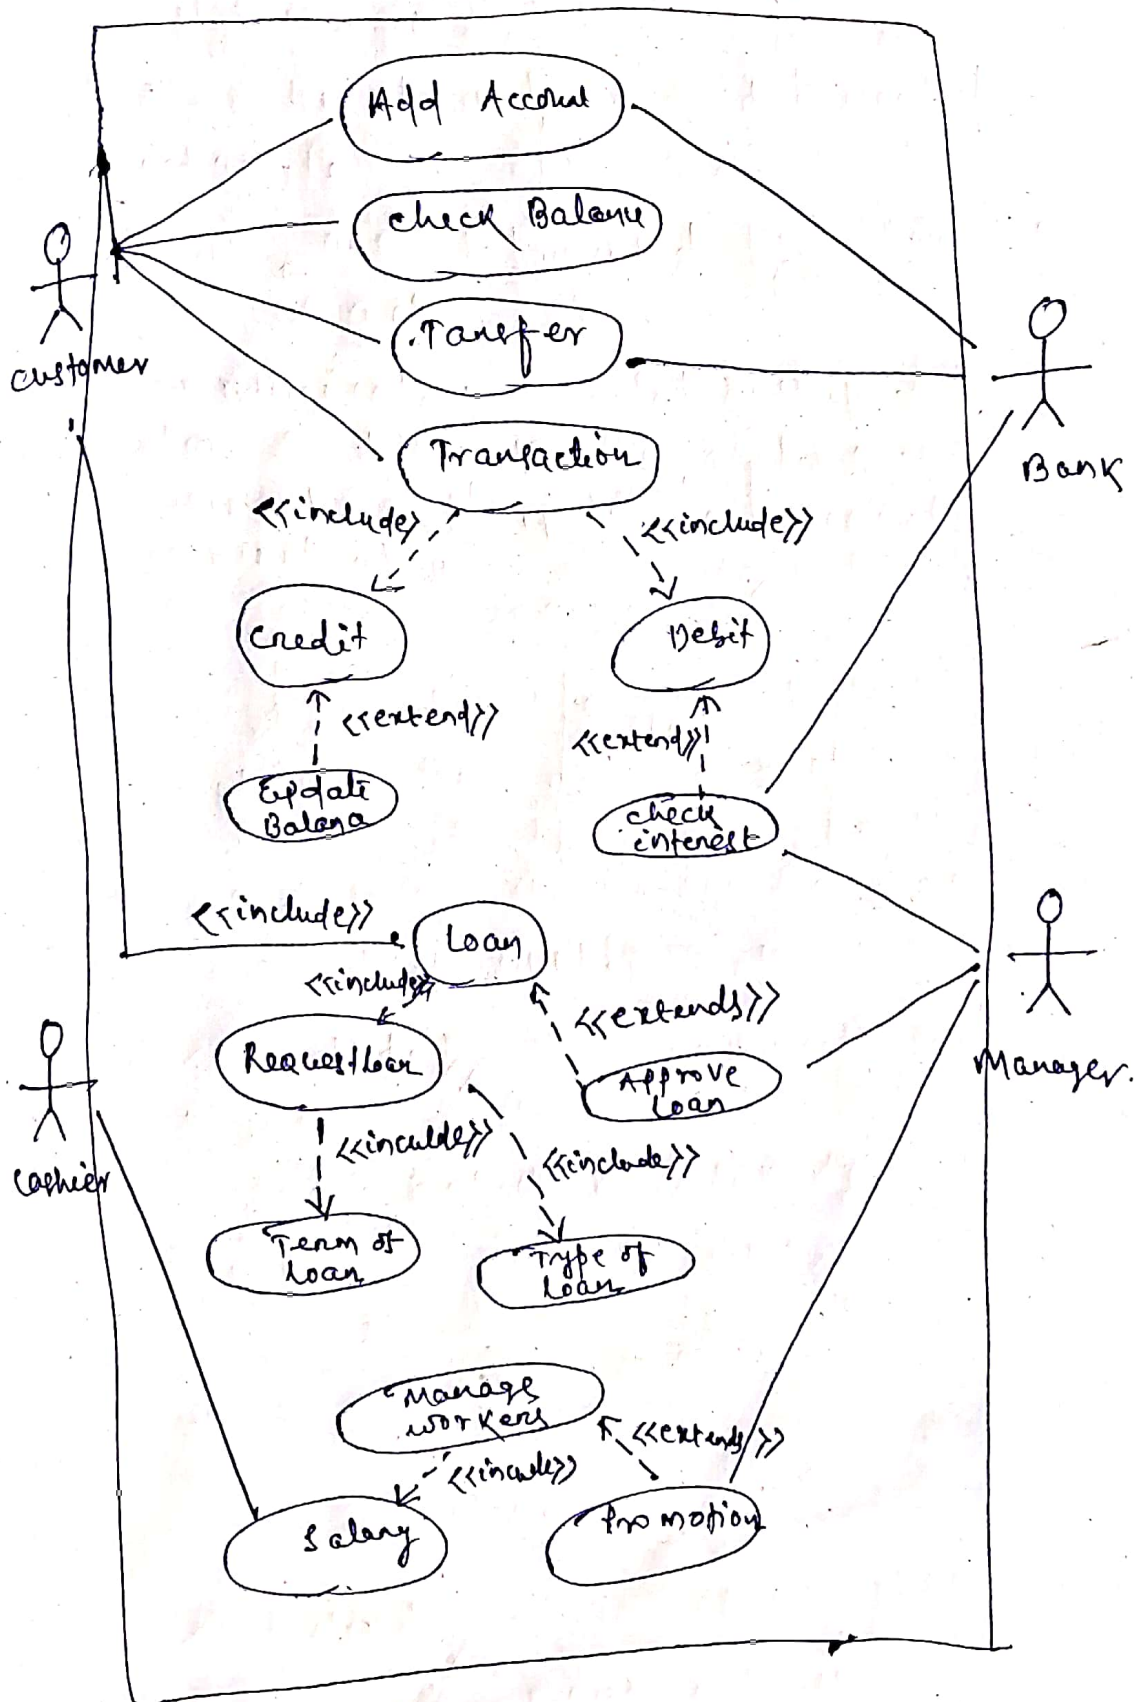 Add Account
check Balance
customer
Tansfer
Bank
Transaction
<<include>
<<include>>
Credit
Debit
<<extend>>
<<extend>>
Balana
check
interest
<<include>>
Loan
<<include>>
<<extends>>
Request Loan
Approve
Loan
Manager.
<<inculde>>
<<include>>
cashier
Term of
Loan
Type of
Loan
Manage
workers
<<extends>>
<<incude>>
Salary
Promotion